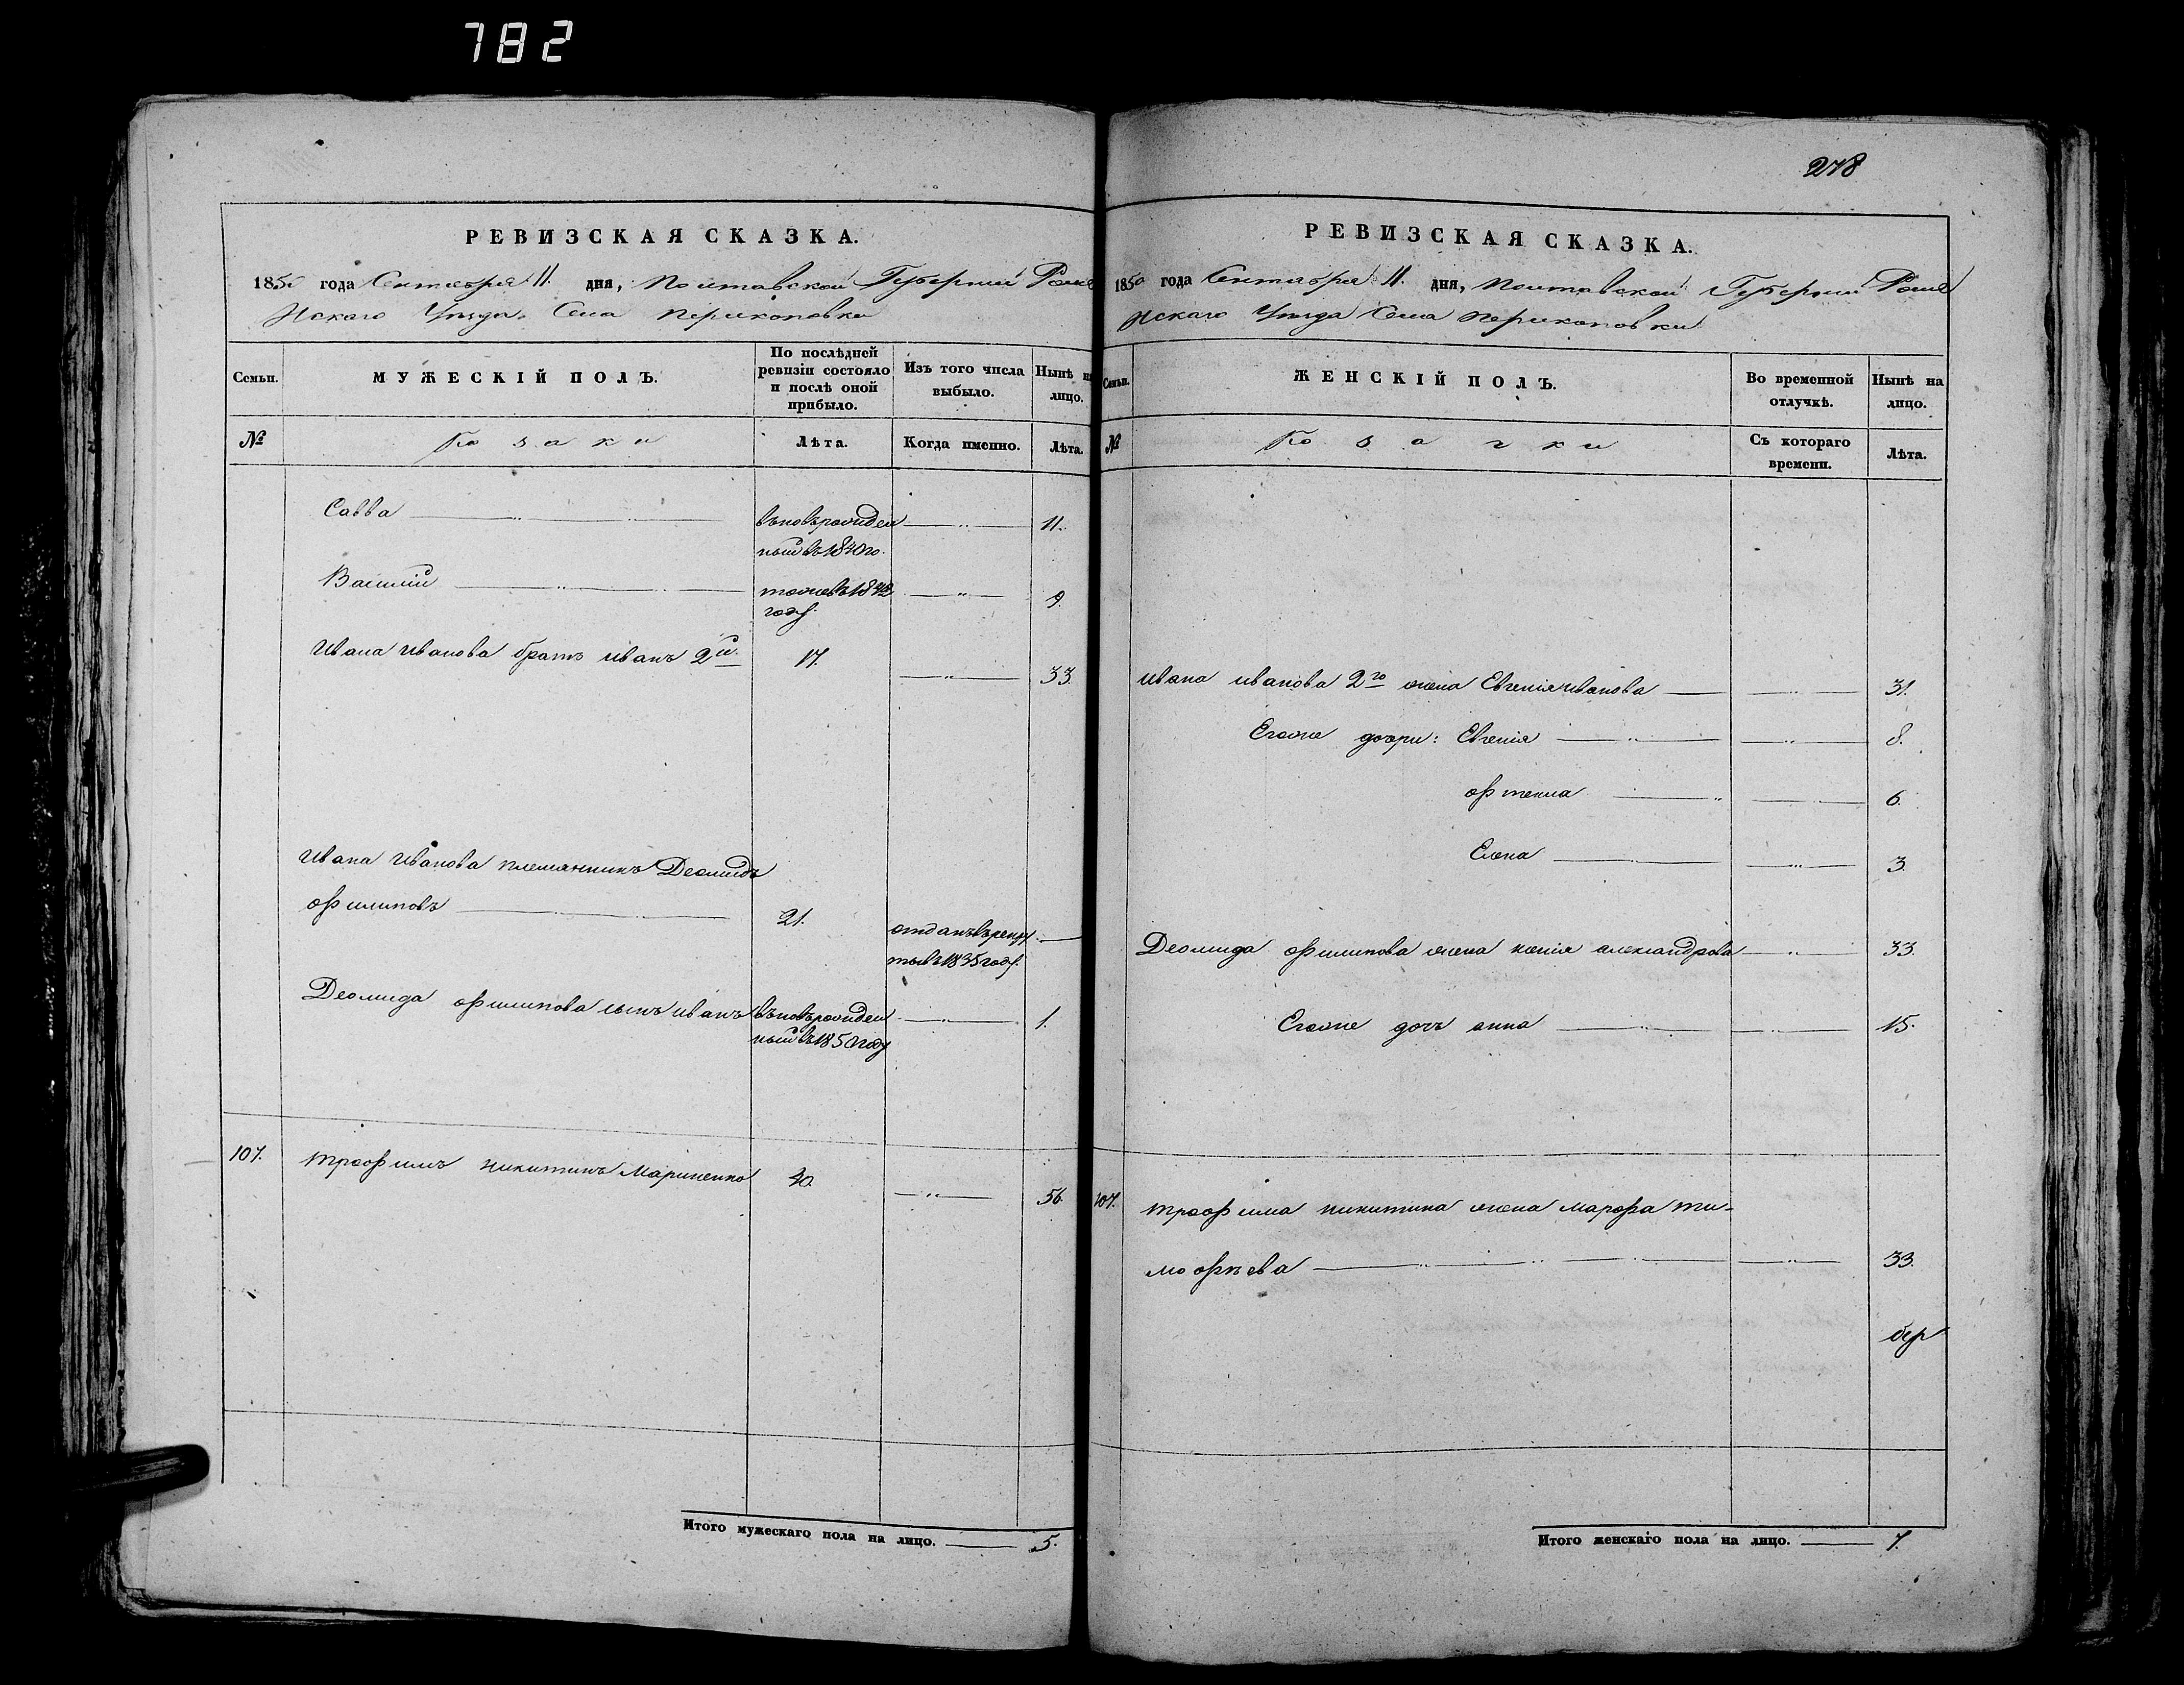 782
278
РЕВИЗСКАЯ СКАЗКА.
1850 года Сентября 11. дня, Полтавской Губернии Роме
нскаго Уезда Села Перекоповки
Семьи.
МУЖЕСКІЙ ПОЛЪ.
По послѣдней ревизіи состояло и послѣ оной прибыло.
Изъ того числа выбыло.
Нынѣ на лицо.
№
Козаки
Лѣта.
Когда именно.
Лѣта.
Савва
вновьрожден
ный въ 1840 го.
11.
Василій
тоже въ 1842
году.
9.
Ивана Иванова братъ Иванъ 2й
17.
33.
Ивана Иванова племянникъ Деомидъ
Филиповъ
21.
отданъ в рекру
ты въ 1835 году.
Деомида Филипова сынъ Иванъ
вновьрожден
ный въ 1850 году
1.
107.
Трофимъ Никитинъ Мариненко
40.
56.
Итого мужескаго пола на лицо.
5.
РЕВИЗСКАЯ СКАЗКА.
1850 года Сентября 11. дня, Полтавской Губернии Роме
нскаго Уезда Села Перекоповки
Семьи.
ЖЕНСКІЙ ПОЛЪ.
Во временной отлучкѣ.
Нынѣ на лицо.
№
Козачки
Съ котораго времени.
Лѣта.
Ивана Иванова 2го жена Евгенія Иванова
31.
Егоже дочри: Евгенія
8.
Фтекла
6.
Елена
3.
Деомида Филипова жена Ксенія Александрова
33.
Егоже дочь Анна
15.
107.
Трофима Никитина жена Марфа Ти-
мофѣева
33.
Итого женскаго пола на лицо.
7.